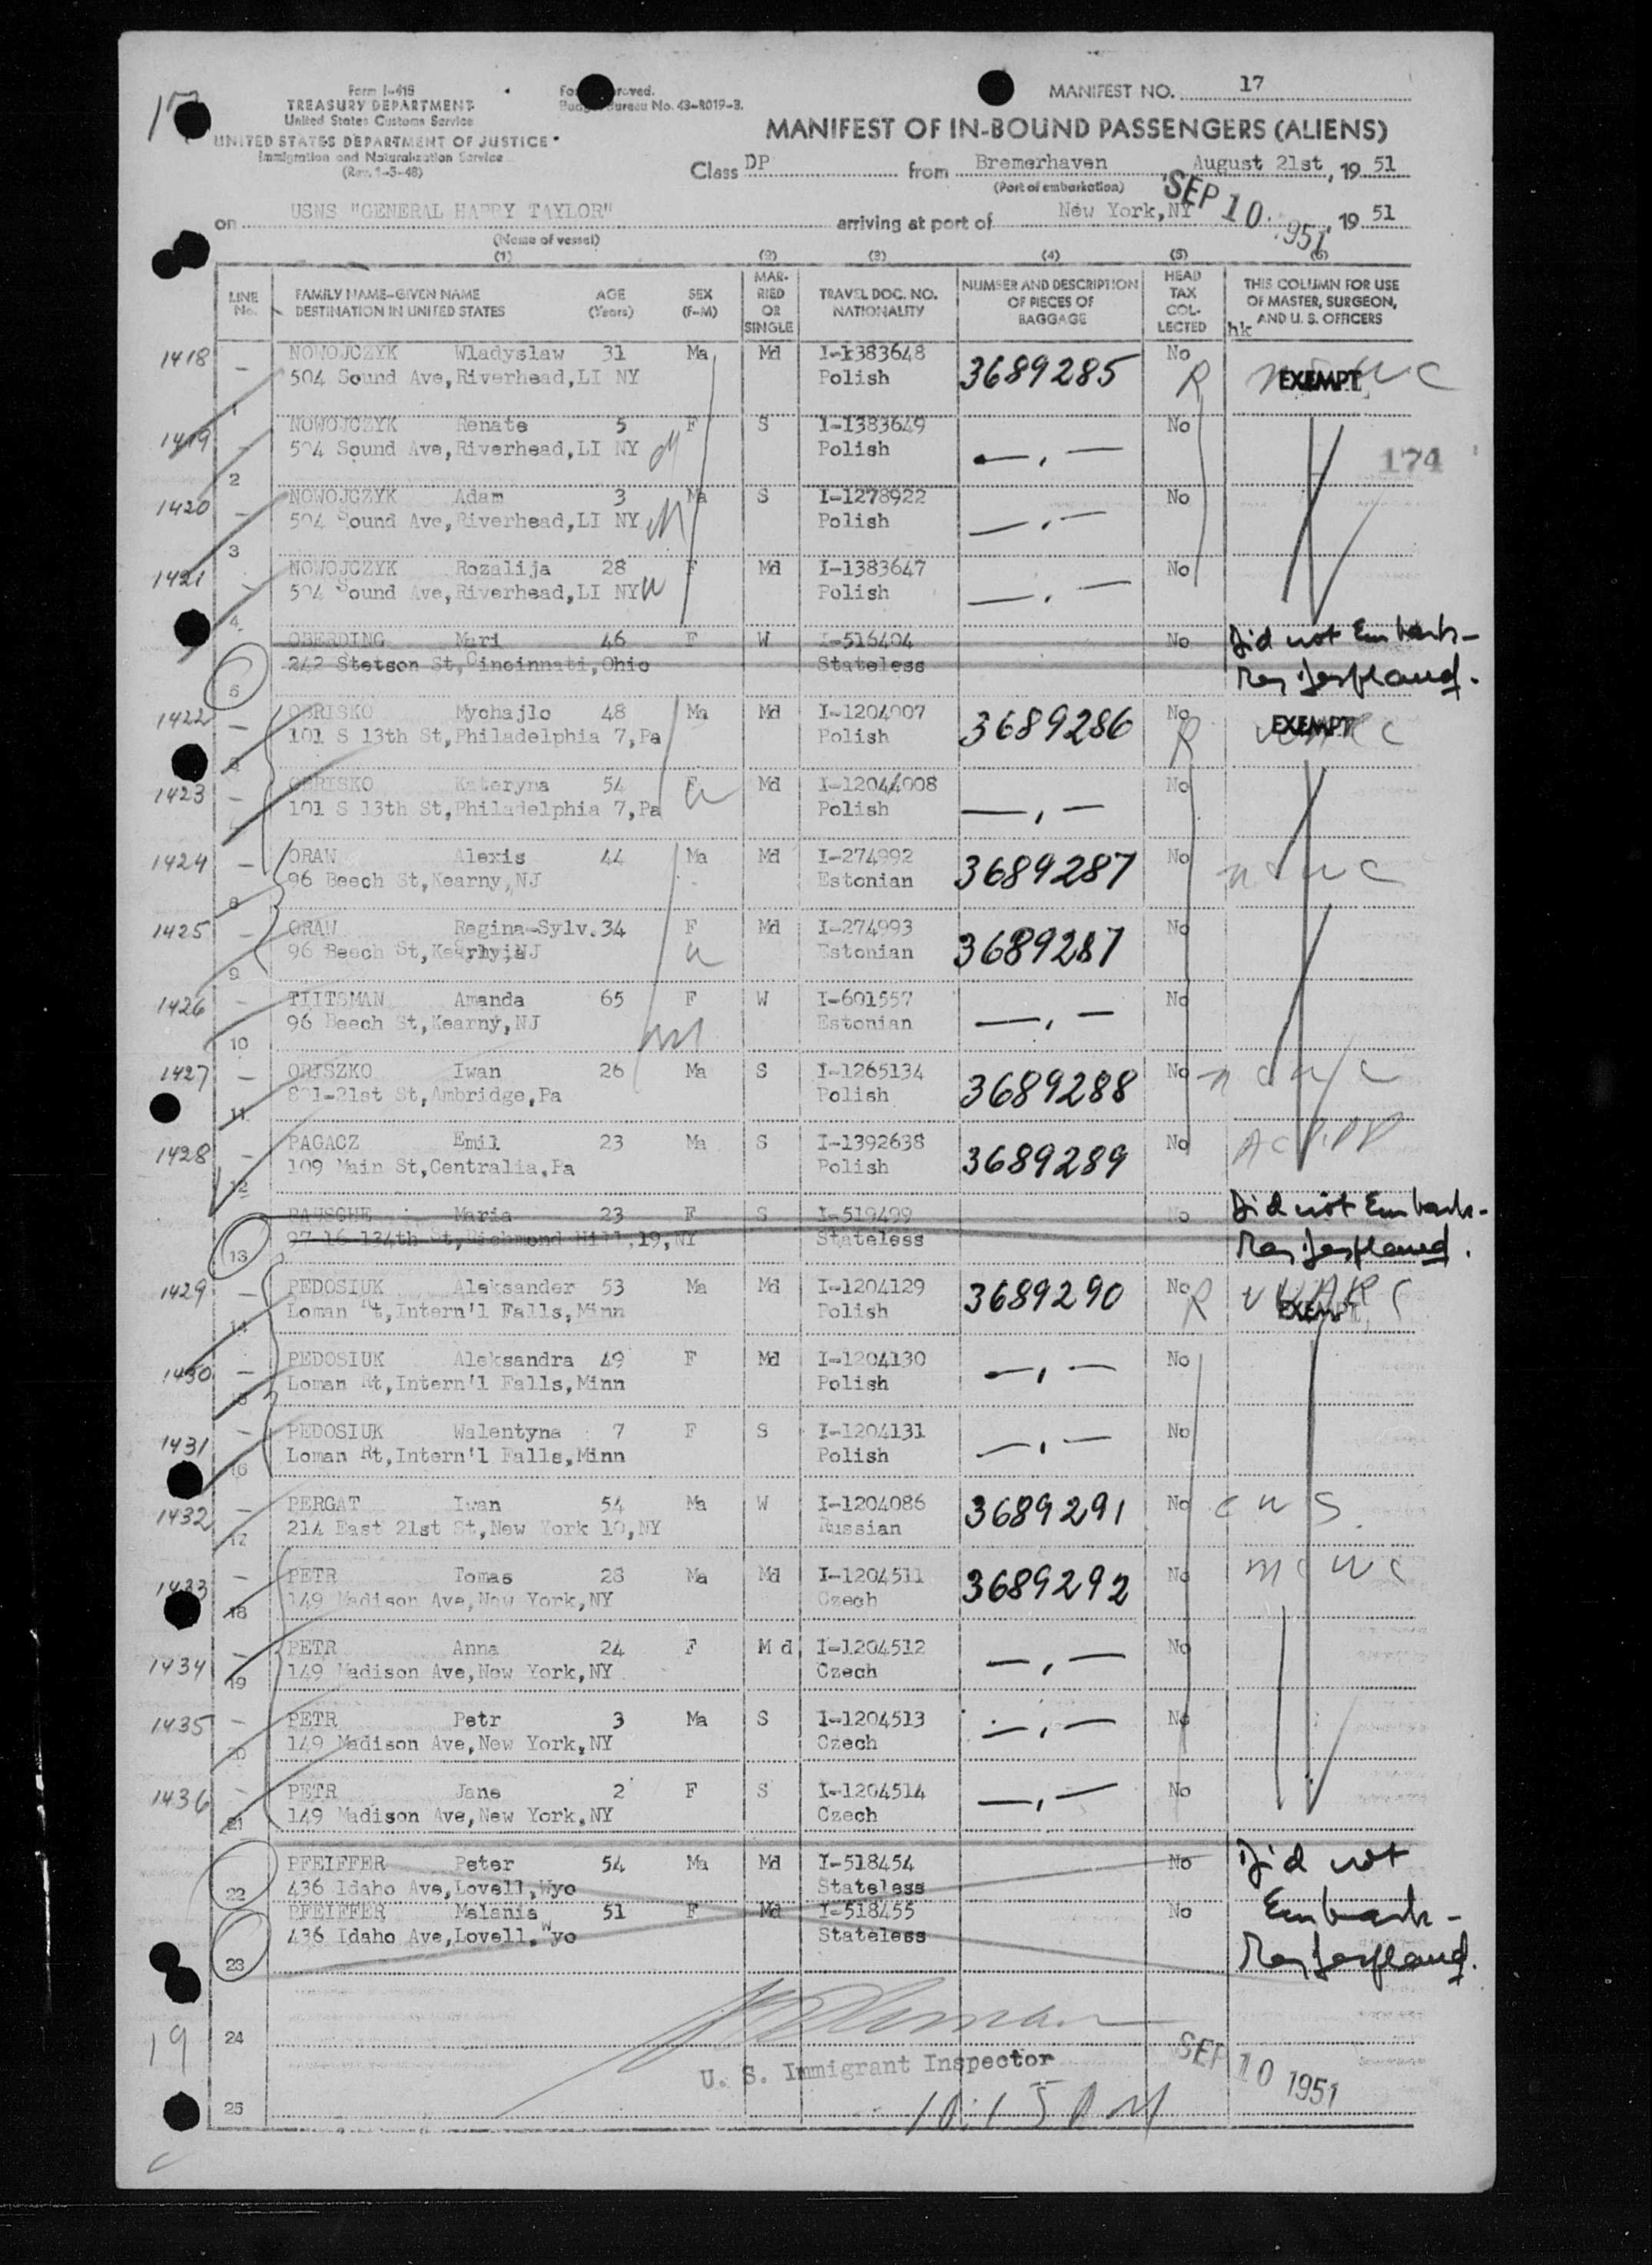 Form I-418
TREASURY DEPARTMENT
United States Customs Service
UNITED STATES DEPARTMENT OF JUSTICE
Immigration and Naturalization Service
(Rev. 1-3-48)
Bureau No. 43-R019-3.
MANIFEST NO. 17
MANIFEST OF IN-BOUND PASSENGERS (ALIENS)
Class DP from Bremerhaven August 21st, 19 51
(Port of embarkation)
on USNS "GENERAL HARRY TAYLOR" arriving at port of New York,NY SEP 10 1951, 19 51
(Name of vessel)
(1) (2) (3) (4) (5) (6)
LINE No. FAMILY NAME-GIVEN NAME DESTINATION IN UNITED STATES AGE (Years) SEX (F-M) MARRIED OR SINGLE TRAVEL DOC. NO. NATIONALITY NUMBER AND DESCRIPTION OF PIECES OF BAGGAGE HEAD TAX COLLECTED THIS COLUMN FOR USE OF MASTER, SURGEON, AND U. S. OFFICERS
hk
1418 NOWOJCZYK Wladyslaw 31 Ma Md I-1383648 3689285 No EXEMPT
504 Sound Ave,Riverhead,LI NY Polish R
1
1419 NOWOJCZYK Renate 5 F S I-1383649 — . — No
504 Sound Ave,Riverhead,LI NY Polish 174
2
1420 NOWOJCZYK Adam 3 Ma S I-1278922 — . — No
504 Sound Ave,Riverhead,LI NY Polish
3
1421 NOWOJCZYK Rozalija 28 F Md I-1383647 — . — No
504 Sound Ave,Riverhead,LI NY Polish
4
OBERDING Mari 46 F W I-516404 No Did not Embark-
242 Stetson St,Cincinnati,Ohio Stateless
5
1422 OBRISKO Mychajlo 48 Ma Md I-1204007 3689286 No EXEMPT
101 S 13th St,Philadelphia 7,Pa Polish R
6
1423 OBRISKO Kateryna 54 F Md I-1204008 — . — No
101 S 13th St,Philadelphia 7,Pa Polish
7
1424 ORAW Alexis 44 Ma Md I-274992 3689287 No
96 Beech St,Kearny,NJ Estonian
8
1425 ORAW Regina-Sylv. 34 F Md I-274993 3689287 No
96 Beech St,Kearny,NJ Estonian
9
1426 TIITSMAN Amanda 65 F W I-601557 — . — No
96 Beech St,Kearny,NJ Estonian
10
1427 ORISZKO Iwan 26 Ma S I-1265134 3689288 No
801-21st St,Ambridge,Pa Polish
11
1428 PAGACZ Emil 23 Ma S I-1392638 3689289 No
109 Main St,Centralia,Pa Polish
12
PAUSCHE Maria 23 F S I-519499 No Did not Embark-
97-16 134th St,Richmond Hill,19,NY Stateless
13
1429 PEDOSIUK Aleksander 53 Ma Md I-1204129 3689290 No
Loman Rt,Intern'l Falls,Minn Polish R EXEMPT
14
1430 PEDOSIUK Aleksandra 49 F Md I-1204130 — . — No
Loman Rt,Intern'l Falls,Minn Polish
15
1431 PEDOSIUK Walentyna 7 F S I-1204131 — . — No
Loman Rt,Intern'l Falls,Minn Polish
16
1432 PERGAT Iwan 54 Ma W I-1204086 3689291 No
214 East 21st St,New York 10,NY Russian
17
1433 PETR Tomas 28 Ma Md I-1204511 3689292 No
149 Madison Ave,New York,NY Czech
18
1434 PETR Anna 24 F M d I-1204512 — . — No
149 Madison Ave,New York,NY Czech
19
1435 PETR Petr 3 Ma S I-1204513 — . — No
149 Madison Ave,New York,NY Czech
20
1436 PETR Jane 2 F S I-1204514 — . — No
149 Madison Ave,New York,NY Czech
21
PFEIFFER Peter 54 Ma Md I-518454 No Did not
22 436 Idaho Ave,Lovell,Wyo Stateless
PFEIFFER Melania 51 F Md I-518455 No Embark-
436 Idaho Ave,Lovell,Wyo Stateless
23
19 24
U. S. Immigrant Inspector SEP 10 1951
25